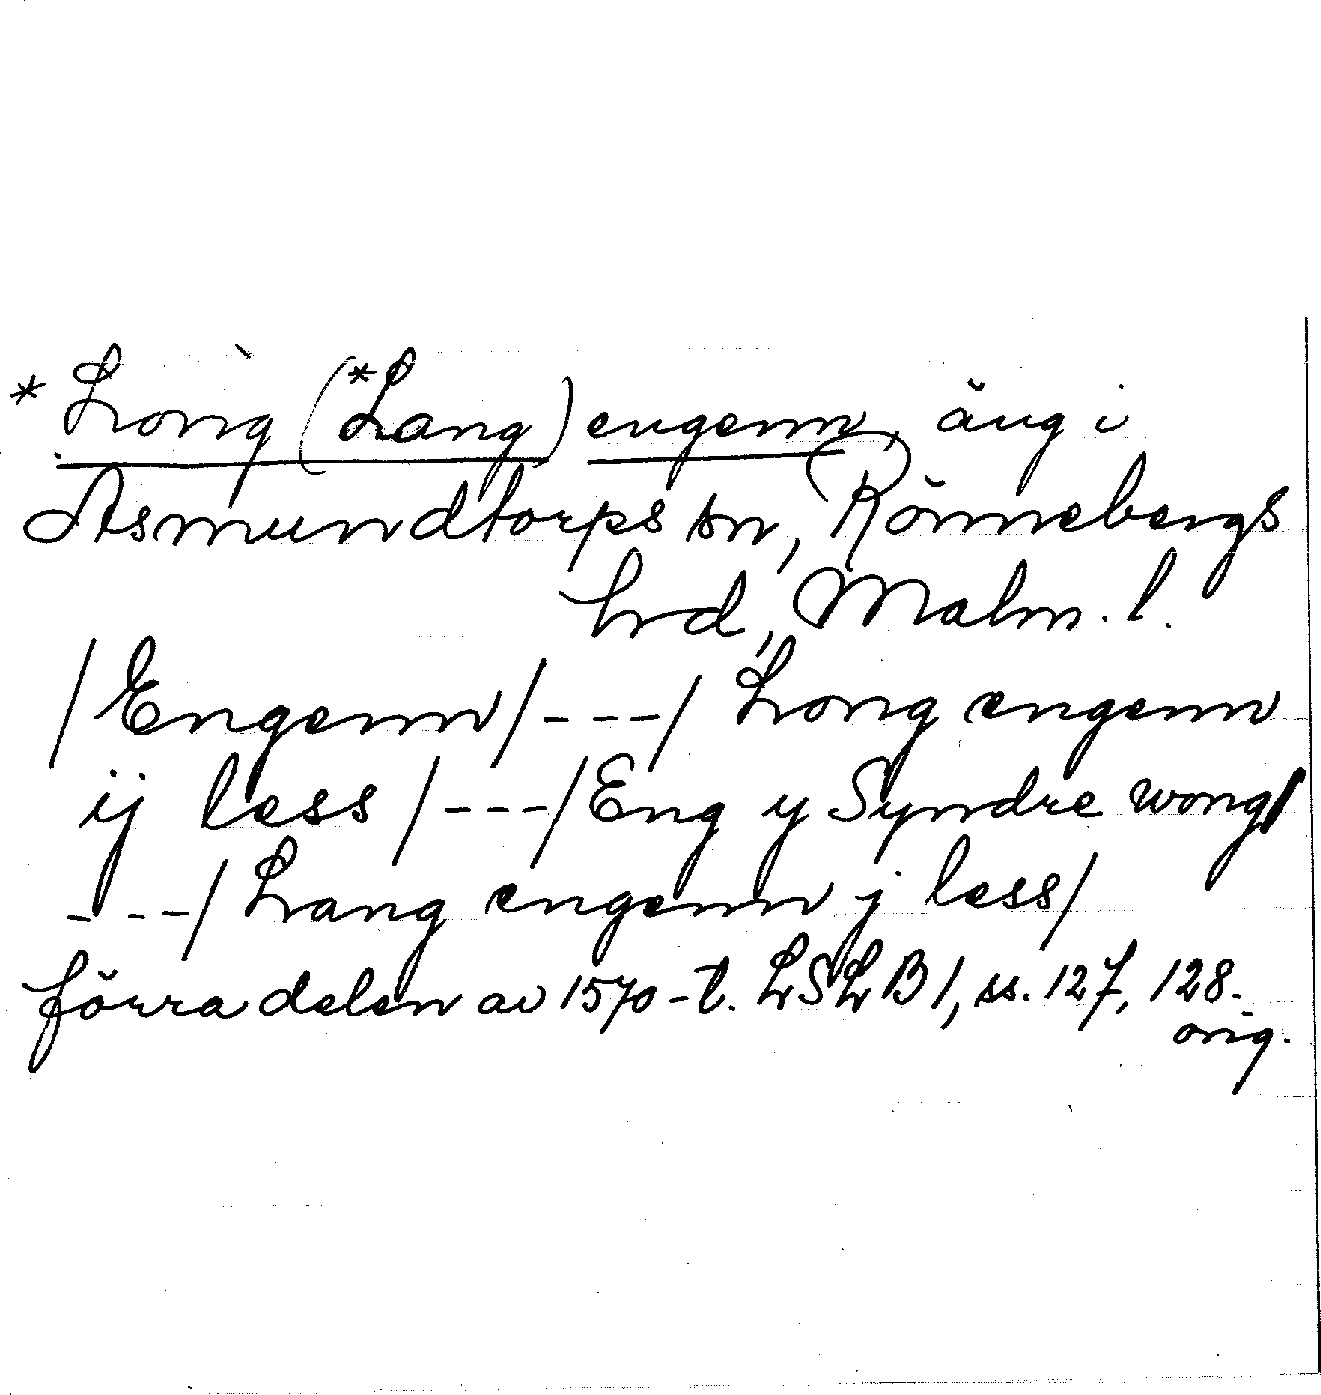 *Long (*Lang) engenn, äng i
Asmundtorps sn, Rönnebergs
hrd, Malm. l.
/Engenn/---/ Long engenn
ij less /---/Eng y Syndre wong/
---/ Lang engenn j less/
förra delen av 1570-t. LSLB 1, ss. 127, 128.
orig.